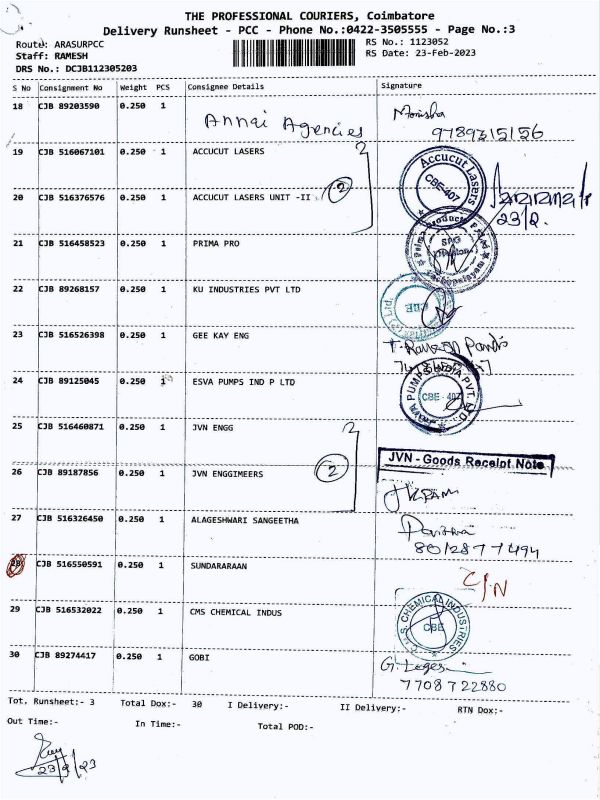 THE PROFESSIONAL COURIERS, Coimbatore
Delivery Runsheet - PCC - Phone No.:0422-3505555 - Page No.:3
Route: ARASURPCC
RS No.: 1123052
Staff: RAMESH
RS Date: 23-Feb-2023
DRS No.: DCJB112305203
S No Consignment No Weight PCS Consignee Details Signature
18 CJB 89203590 0.250 1 Annai Agencies Monisha
9789315156
19 CJB 516067101 0.250 1 ACCUCUT LASERS
Accucut Lasers
CBE-407
20 CJB 516376576 0.250 1 ACCUCUT LASERS UNIT -II 2
23/2.
21 CJB 516458523 0.250 1 PRIMA PRO
Prima Products
22 CJB 89268157 0.250 1 KU INDUSTRIES PVT LTD
(P) Ltd.
CBE
23 CJB 516526398 0.250 1 GEE KAY ENG
24 CJB 89125045 0.250 1 ESVA PUMPS IND P LTD
PUMPS INDIA PVT. LTD.
CBE - 407
25 CJB 516460871 0.250 1 JVN ENGG
JVN - Goods Receipt Note
26 CJB 89187856 0.250 1 JVN ENGGIMEERS 2
27 CJB 516326450 0.250 1 ALAGESHWARI SANGEETHA
Pavithra
8012877494
28 CJB 516550591 0.250 1 SUNDARARAAN
C/N
29 CJB 516532022 0.250 1 CMS CHEMICAL INDUS
CHEMICAL INDUSTRIES
CBE
30 CJB 89274417 0.250 1 GOBI
7708722880
Tot. Runsheet:- 3 Total Dox:- 30 I Delivery:- II Delivery:- RTN Dox:-
Out Time:- In Time:- Total POD:-
23/2/23